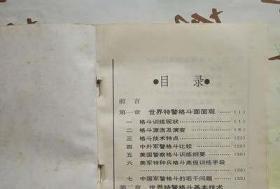 ●目 录●
前 言
第一章 世界特警格斗面面观 (1)
一 格斗训练现状 (1)
二 格斗源流及演变
三 格斗技术特点
四 中外军警格斗比较
五 美国警察格斗训练纲要
六 美军特种兵格斗高级训练手段
七 中国军警格斗的若干问题
第二章 世界特警格斗基本技术